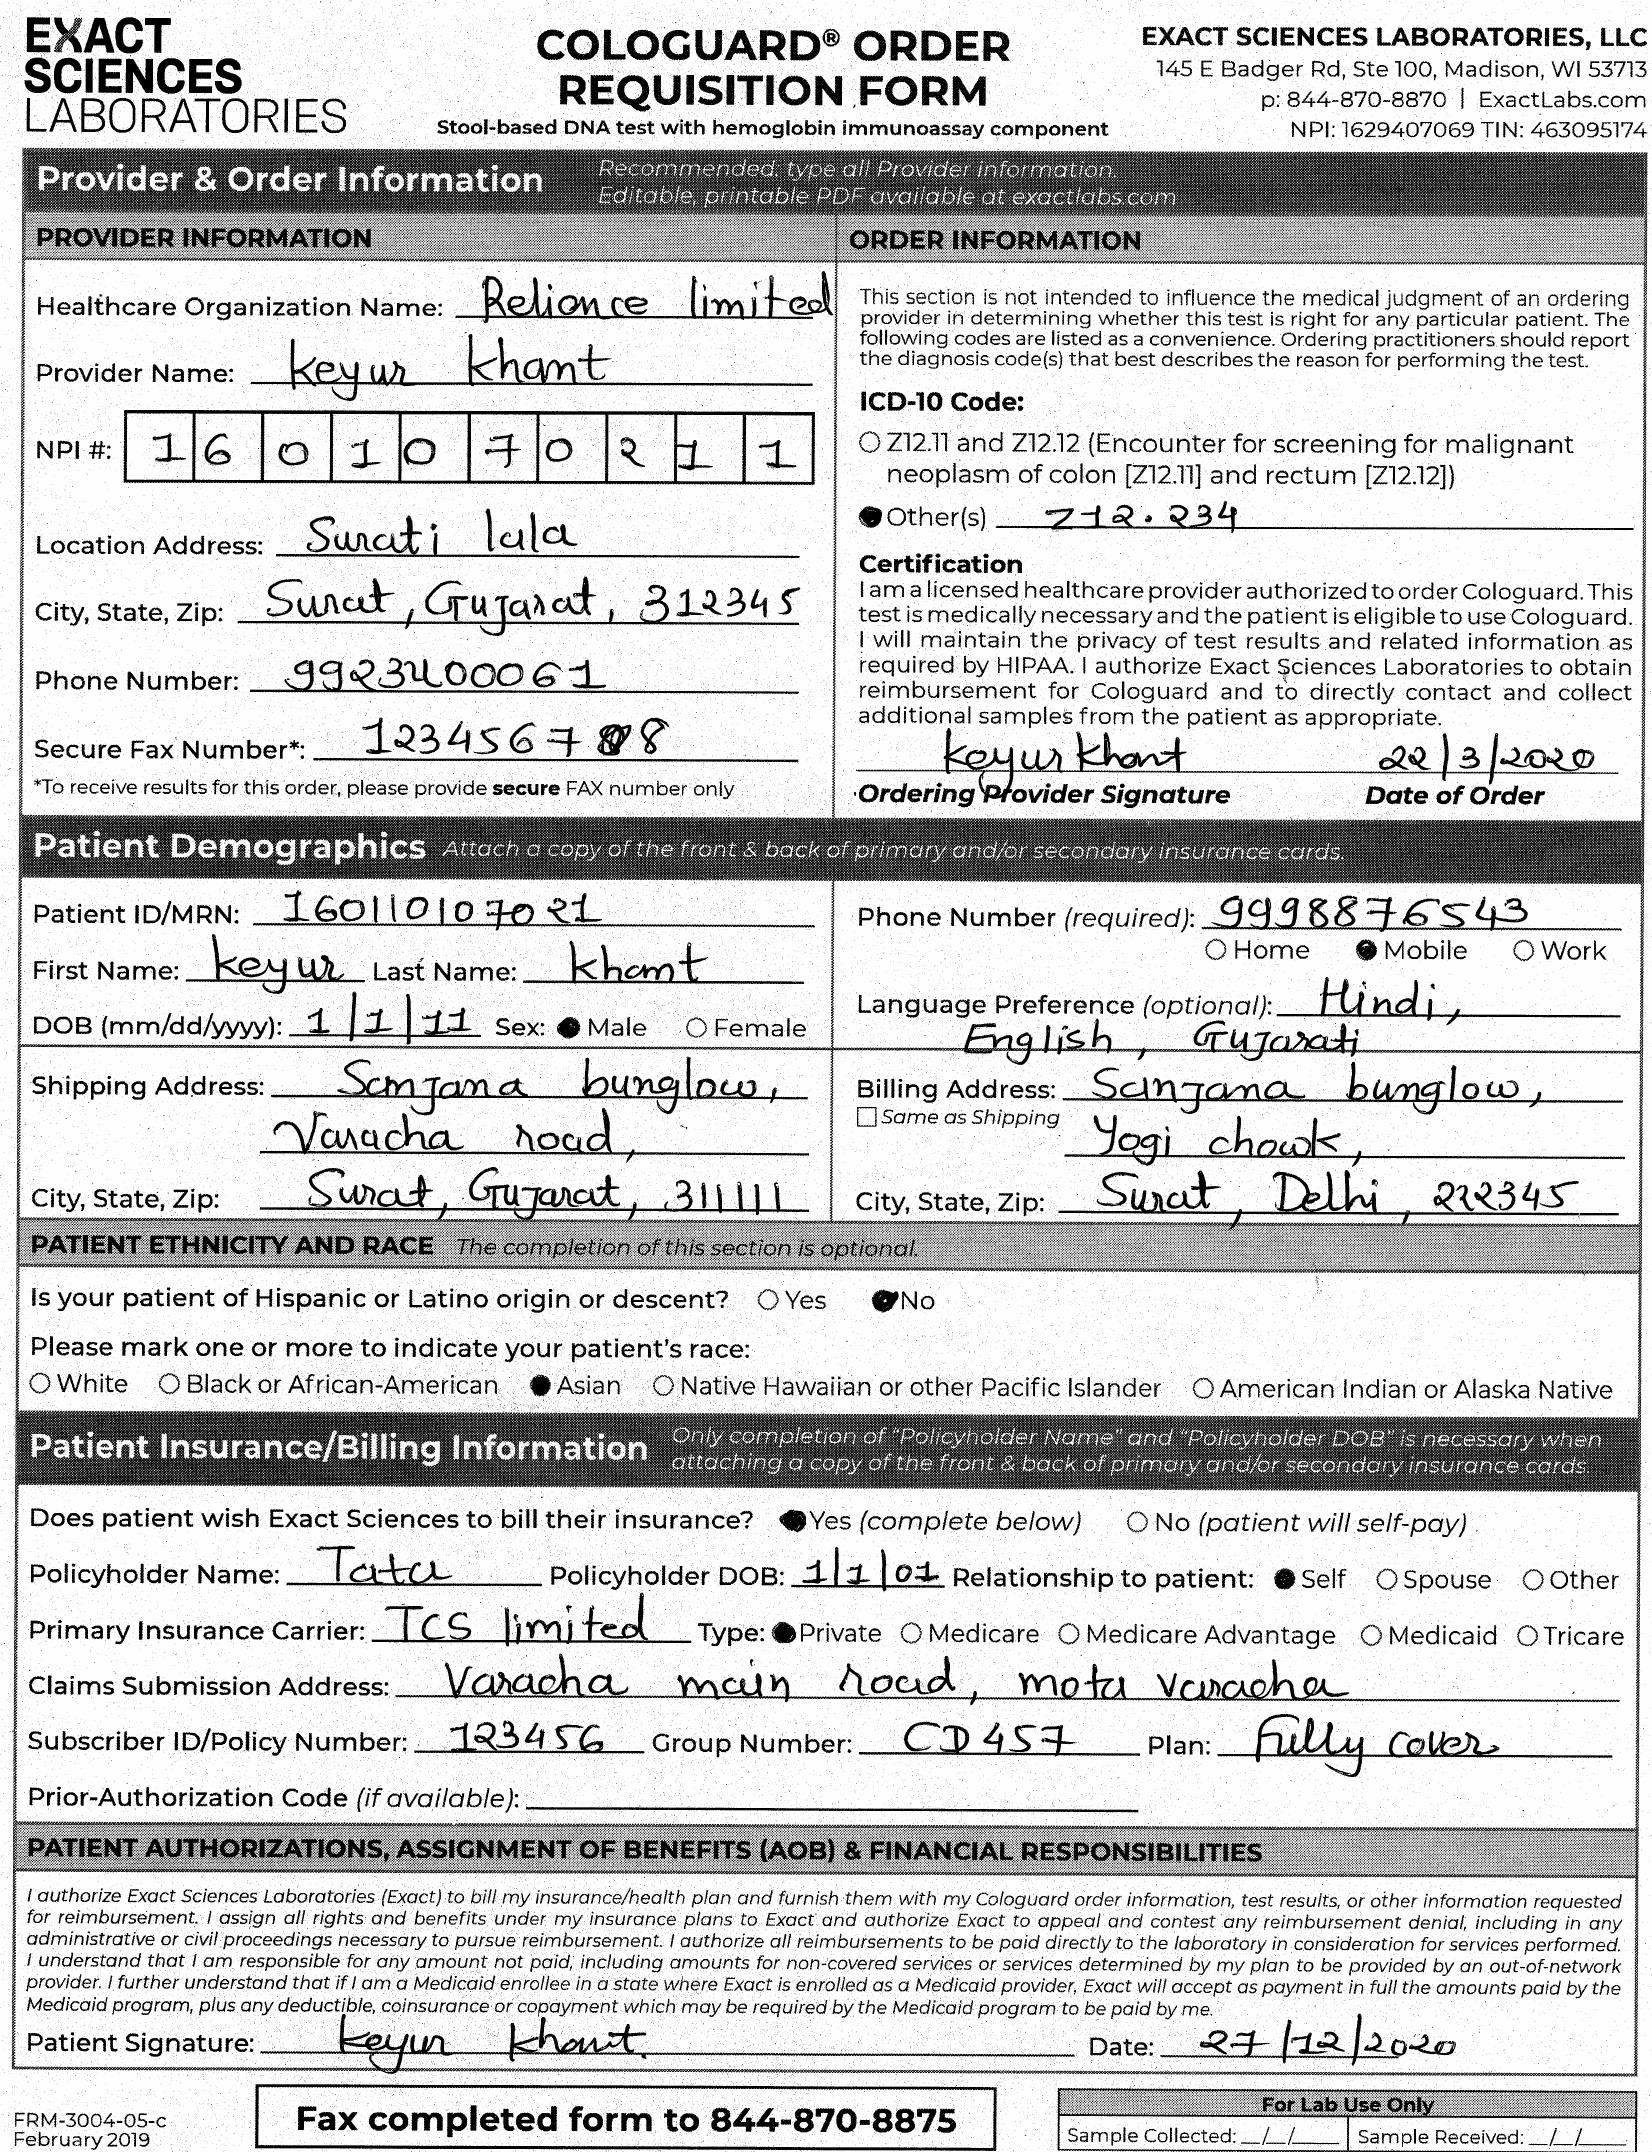 EXACT SCIENCES LABORATORIES
COLOGUARD® ORDER REQUISITION FORM
Stool-based DNA test with hemoglobin immunoassay component
EXACT SCIENCES LABORATORIES, LLC
145 E Badger Rd, Ste 100, Madison, WI 53713
p: 844-870-8870 | ExactLabs.com
NPI: 1629407069 TIN: 463095174
Provider & Order Information
Recommended: type all Provider information.
Editable, printable PDF available at exactlabs.com
PROVIDER INFORMATION
Healthcare Organization Name: Reliance limited
Provider Name: Keyur Khant
NPI #: 1 6 0 1 0 7 0 2 1 1
Location Address: Surati lala
City, State, Zip: Surat, Gujarat, 312345
Phone Number: 9923400061
Secure Fax Number*: 1234567 8
*To receive results for this order, please provide secure FAX number only
ORDER INFORMATION
This section is not intended to influence the medical judgment of an ordering
provider in determining whether this test is right for any particular patient. The
following codes are listed as a convenience. Ordering practitioners should report
the diagnosis code(s) that best describes the reason for performing the test.
ICD-10 Code:
Z12.11 and Z12.12 (Encounter for screening for malignant
neoplasm of colon [Z12.11] and rectum [Z12.12])
Other(s) Z12.234
Certification
I am a licensed healthcare provider authorized to order Cologuard. This
test is medically necessary and the patient is eligible to use Cologuard.
I will maintain the privacy of test results and related information as
required by HIPAA. I authorize Exact Sciences Laboratories to obtain
reimbursement for Cologuard and to directly contact and collect
additional samples from the patient as appropriate.
Keyur Khant 22/3/2020
Ordering Provider Signature Date of Order
Patient Demographics Attach a copy of the front & back of primary and/or secondary insurance cards.
Patient ID/MRN: 160110107021
First Name: Keyur Last Name: Khant
DOB (mm/dd/yyyy): 1/1/11 Sex: Male Female
Phone Number (required): 9998876543
Home Mobile Work
Language Preference (optional): Hindi,
English, Gujarati
Shipping Address: Sanjana bunglow,
Varacha road,
City, State, Zip: Surat, Gujarat, 311111
Billing Address: Sanjana bunglow,
Same as Shipping
Yogi chowk,
City, State, Zip: Surat, Delhi, 212345
PATIENT ETHNICITY AND RACE The completion of this section is optional.
Is your patient of Hispanic or Latino origin or descent? Yes No
Please mark one or more to indicate your patient's race:
White Black or African-American Asian Native Hawaiian or other Pacific Islander American Indian or Alaska Native
Patient Insurance/Billing Information
Only completion of "Policyholder Name" and "Policyholder DOB" is necessary when
attaching a copy of the front & back of primary and/or secondary insurance cards.
Does patient wish Exact Sciences to bill their insurance? Yes (complete below) No (patient will self-pay)
Policyholder Name: Tata Policyholder DOB: 1/1/01 Relationship to patient: Self Spouse Other
Primary Insurance Carrier: TCS limited Type: Private Medicare Medicare Advantage Medicaid Tricare
Claims Submission Address: Varacha main road, mota varacha
Subscriber ID/Policy Number: 123456 Group Number: CD457 Plan: Fully cover
Prior-Authorization Code (if available):
PATIENT AUTHORIZATIONS, ASSIGNMENT OF BENEFITS (AOB) & FINANCIAL RESPONSIBILITIES
I authorize Exact Sciences Laboratories (Exact) to bill my insurance/health plan and furnish them with my Cologuard order information, test results, or other information requested
for reimbursement. I assign all rights and benefits under my insurance plans to Exact and authorize Exact to appeal and contest any reimbursement denial, including in any
administrative or civil proceedings necessary to pursue reimbursement. I authorize all reimbursements to be paid directly to the laboratory in consideration for services performed.
I understand that I am responsible for any amount not paid, including amounts for non-covered services or services determined by my plan to be provided by an out-of-network
provider. I further understand that if I am a Medicaid enrollee in a state where Exact is enrolled as a Medicaid provider, Exact will accept as payment in full the amounts paid by the
Medicaid program, plus any deductible, coinsurance or copayment which may be required by the Medicaid program to be paid by me.
Patient Signature: Keyur Khant. Date: 27/12/2020
FRM-3004-05-c
February 2019
Fax completed form to 844-870-8875
For Lab Use Only
Sample Collected: __/__/____ Sample Received: __/__/____